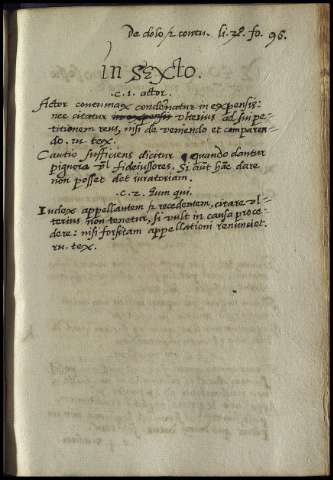 De dolo et contu. li. 2o. fo. 96.
in Sexto.
.c. 1. actor.
Actor contumax condemnatur in expensis:
nec citatur in expensis ulterius ad sui pe-
titionem reus, nisi de veniendo et comparen-
do. in tex.
Cautio sufficiens dicitur quando dantur
pignora vel fideiussores. Si aut hac dare
non posset det iuratoriam.
.c. 2. Cum qui.
Iudex appellantem et recedentem, citare ul-
terius non tenetur, si vult in causa proce-
dere: nisi forsitam appellationi renunciet.
in tex.